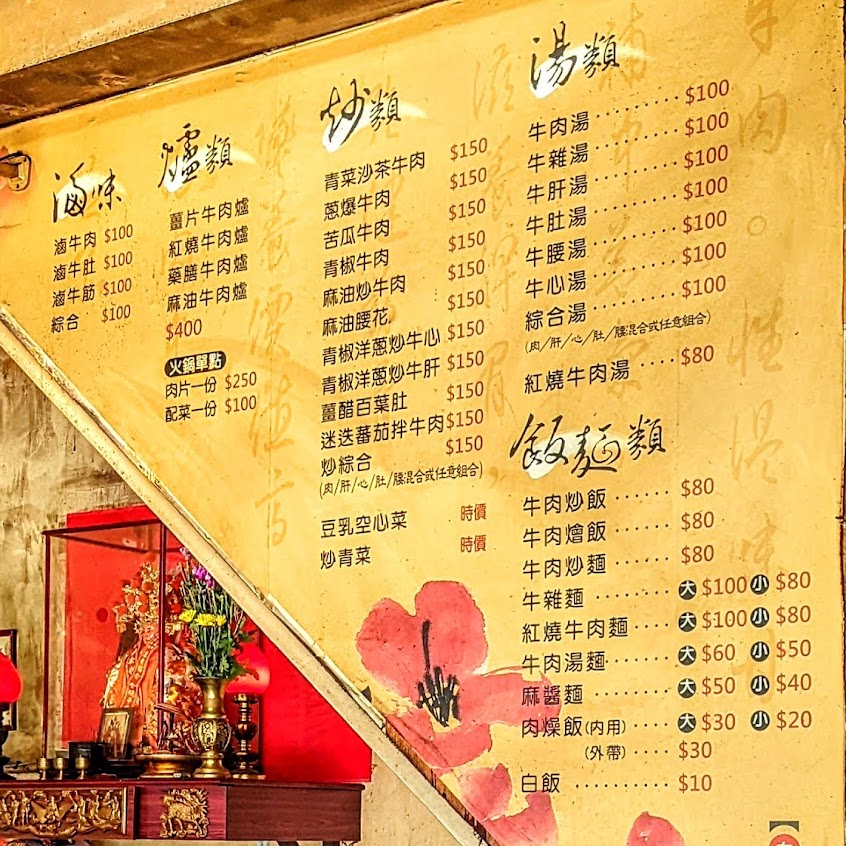 滷味
滷牛肉 $100
滷牛肚 $100
滷牛筋 $100
綜合 $100
爐類
薑片牛肉爐
紅燒牛肉爐
藥膳牛肉爐
麻油牛肉爐
$400
火鍋單點
肉片一份 $250
配菜一份 $100
炒類
青菜沙茶牛肉 $150
蔥爆牛肉 $150
苦瓜牛肉 $150
青椒牛肉 $150
麻油炒牛肉 $150
麻油腰花 $150
青椒洋蔥炒牛心 $150
青椒洋蔥炒牛肝 $150
薑醋百葉肚 $150
迷迭蕃茄拌牛肉 $150
炒綜合 $150
(肉/肝/心/肚/腰混合或任意組合)
豆乳空心菜 時價
炒青菜 時價
湯類
牛肉湯 ········· $100
牛雜湯 ········· $100
牛肝湯 ········· $100
牛肚湯 ········· $100
牛腰湯 ········· $100
牛心湯 ········· $100
綜合湯 ········· $100
(肉/肝/心/肚/腰混合或任意組合)
紅燒牛肉湯 ···· $80
飯麵類
牛肉炒飯 ······ $80
牛肉燴飯 ······ $80
牛肉炒麵 ······ $80
牛雜麵 ········ 大 $100 小 $80
紅燒牛肉麵 ···· 大 $100 小 $80
牛肉湯麵 ······· 大 $60 小 $50
麻醬麵 ········ 大 $50 小 $40
肉燥飯(內用) ···· 大 $30 小 $20
(外帶) ···· $30
白飯 ·········· $10